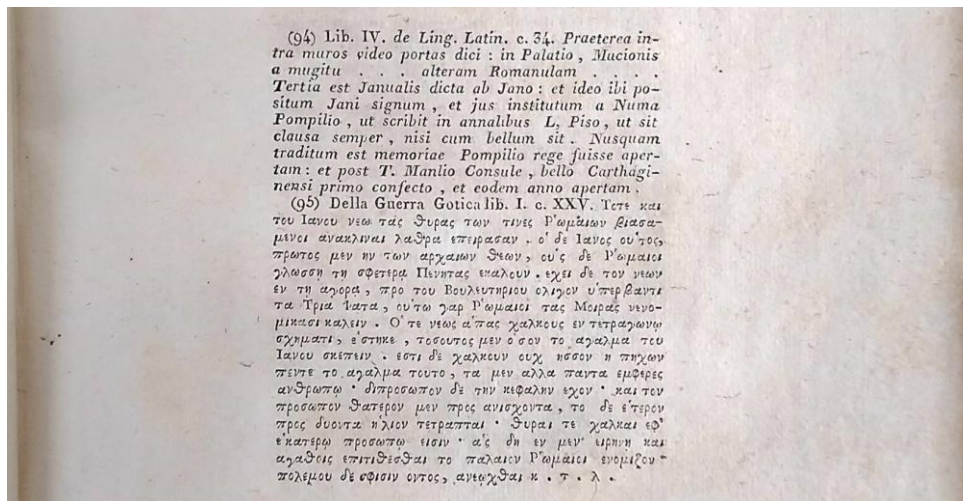 (94) Lib. IV. de Ling. Latin. c. 34. Praeterea in-
tra muros video portas dici : in Palatio, Mucionis
a mugitu . . . alteram Romanulam . . . .
Tertia est Janualis dicta ab Jano : et ideo ibi po-
situm Jani signum , et jus institutum a Numa
Pompilio , ut scribit in annalibus L, Piso , ut sit
clausa semper , nisi cum bellum sit . Nusquam
traditum est memoriae Pompilio rege fuisse aper-
tam : et post T. Manlio Consule , bello Carthagi-
nensi primo confecto , et eodem anno apertam .
(95) Della Guerra Gotica lib. I. c. XXV. Τοτε και
του Ιανου νεω τας θυρας των τινες Ρ'ωμαιων βιασα-
μενοι ανακλιναι λαθρα επειρασαν . ο' δε Ιανος ου'τος,
πρωτος μεν ην των αρχαιων θεων , ου'ς δε Ρ'ωμαιοι
γλωσση τη σφετερα Πενητας εκαλουν . εχει δε τον νεων
εν τη αγορα , προ του Βουλευτηριου ολιγον υ'περβαντι
τα Τρια Φατα , ου'τω γαρ Ρ'ωμαιοι τας Μοιρας νενο-
μικασι καλειν . Ο' τε νεως α'πας χαλκους εν τετραγωνω
σχηματι , ε'στηκε , τοσουτος μεν ο'σον το αγαλμα του
Ιανου σκεπειν . εστι δε χαλκουν ουχ ησσον η πηχων
πεντε το αγαλμα τουτο , τα μεν αλλα παντα εμφερες
ανθρωπω · διπροσωπον δε την κεφαλην εχον · και τον
προσωπον θατερον μεν προς ανισχοντα , το δε ε'τερον
προς δυοντα η'λιον τετραπται · θυραι τε χαλκαι εφ'
ε'κατερω προσωπω εισιν · α'ς δη εν μεν ειρηνη και
αγαθοις επιτιθεσθαι το παλαιον Ρ'ωμαιοι ενομιζον ·
πολεμου δε σφισιν οντος, ανεωχθαι κ . τ . λ .